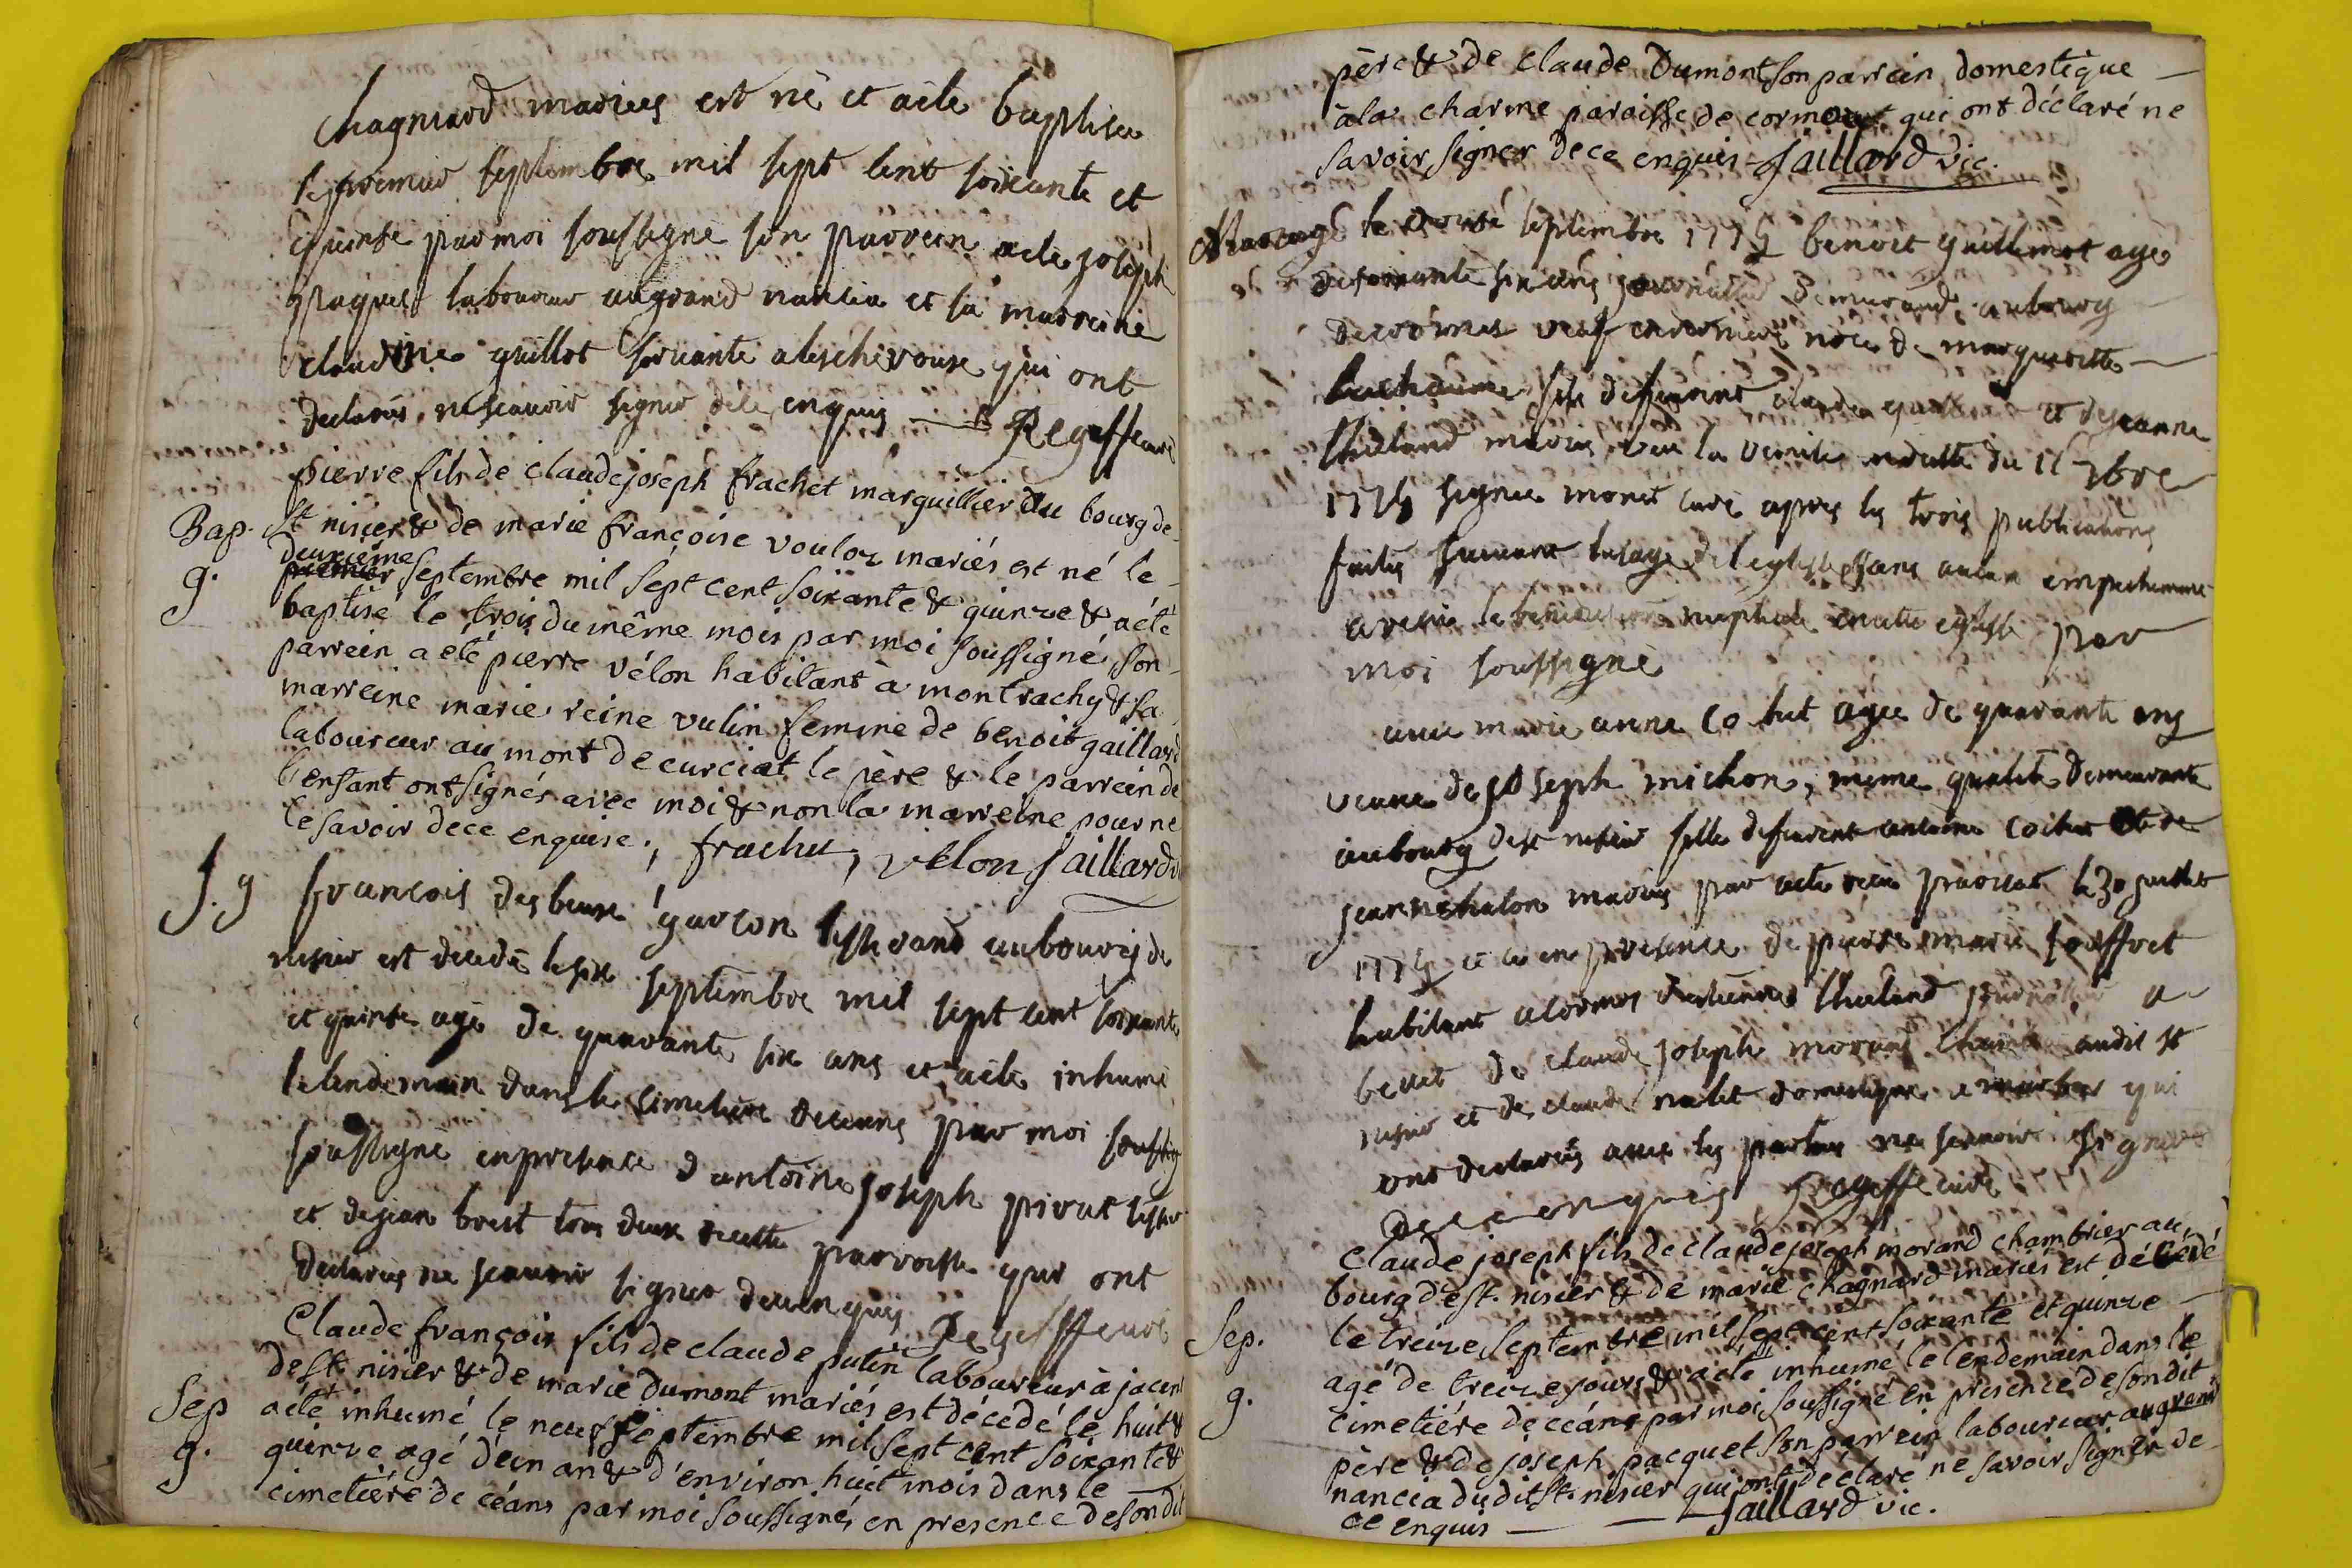 Chagniard maries est né et aété baptisé
le premier septembre mil sept cent soixante et
quinse par moi soussigné son parrein a été joseph
paquet laboureur au grand nancia et sa marreine
claudine guillot servante a leschevoux qui ont
declarés ne scavoir signer de ce enquis Regeffe curé
pierre fils de claude joseph frachet marguillier du bourg de
Bap. St nisier & de marie françoise vouloz mariés est né le
deuxième
g. premier septembre mil sept cent soixante & quinze & aété
baptisé le trois du même mois par moi soussigné, son
parrein a été pierre vélon habitant à montrachy & sa
marreine marie reine vulin femme de benoit gaillard
laboureur au mont de curciat le père & le parrein de
l'enfant ont signés avec moi & non la marreine pour ne
le savoir de ce enquise., frachet, vélon Jaillard v
S. g françois desbeux garcon tisserand au bourg de
nisier est decedé le six septembre mil sept cent soixante
et quinse agé de quarante six ans et a été inhumé
le lendemain dans le cimetiere de ceans par moi soussig
soussigné en presence d'antoine joseph privat
et de jean brest tous deux de cette parroisse qui ont
declarés ne scavoir signer de ce enquis Regeffe curé
Claude françois fils de claude putin laboureur à jacen
de St. nisier & de marie dumont mariés est décédé le huit &
Sep aété inhumé le neuf septembre mil sept cent soixante &
g. quinze agé d'un an & d'environ huit mois dans le
cimetière de céans par moi soussigné, en presence de son dit
père & de claude Dumont son parrein domestique
à la charme paroisse de cormoux qui ont déclaré ne
savoir signer de ce enquis Jaillard vic.
Mariage le septembre 1775 benoit guillemot agé
de soixante six ans journallier demeurand au bourg
de cormos veuf en dernière nôce de marguerite
fils de furent et de jeanne
thieland mariés vu la remise du 11 7bre
1775 signée monet curé apres les trois publications
faites suivant lusage de leglise sans aucun empechement
a recu la benediction nuptiale en cette eglise par
moi soussigné
avec marie anne cobut agée de quarante ans
veuve de joseph michon, meme qualité demeurante
au bourg de st nisier fille de furent antoine et de
jeanne chalon mariés par acte recu le 30 juillet
1775 et ce en presence de pierre marie
habitant a cormos d'estienne thieland journallier a
bevet de claude joseph morand audit st
nisier et de claude nalet domestique a qui
ont declarés avec les parties ne scavoir signer
de ce enquis, Regeffe curé
Claude joseph fils de claude joseph morand chambrier au
bourg de St. nisier & de marie chagnard mariés est décédé
Sep. le treize septembre mil sept cent soixante et quinze
agé de treize jours & a été inhumé le lendemain dans le
g. cimetière de céans par moi soussigné en présence de son dit
père & de joseph pacquet son parrein laboureur au grand
nancea dudit St. nisier qui ont déclaré ne savoir signer de
ce enquis Jaillard vic.